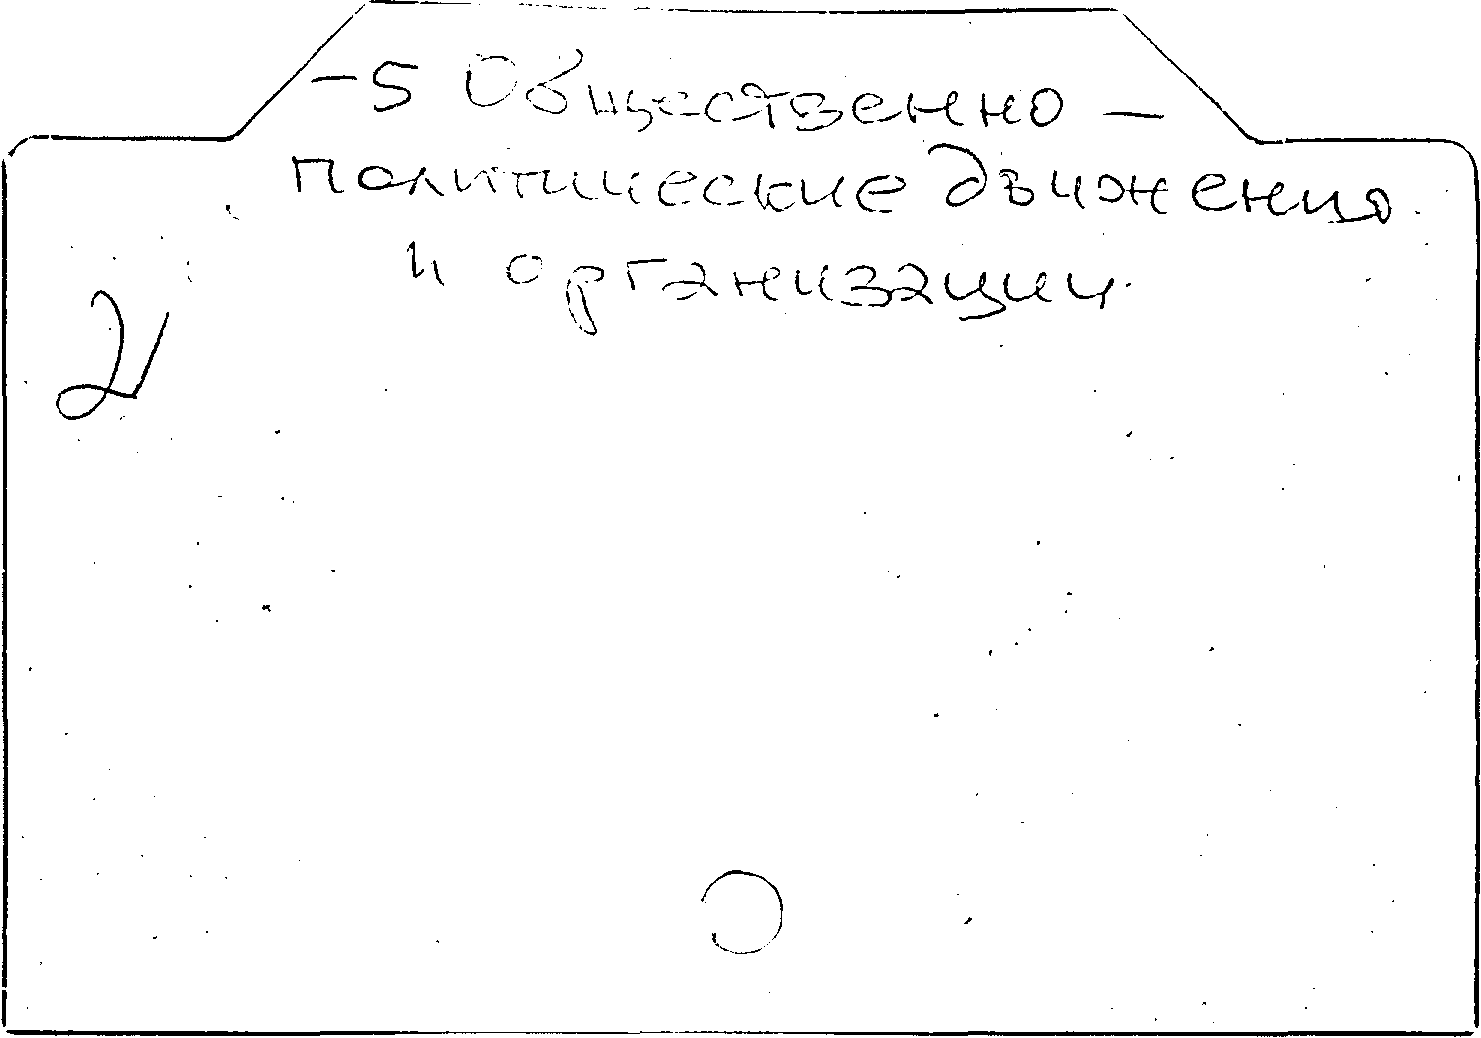 -5 Общественно-
политические движения
и организации.
2